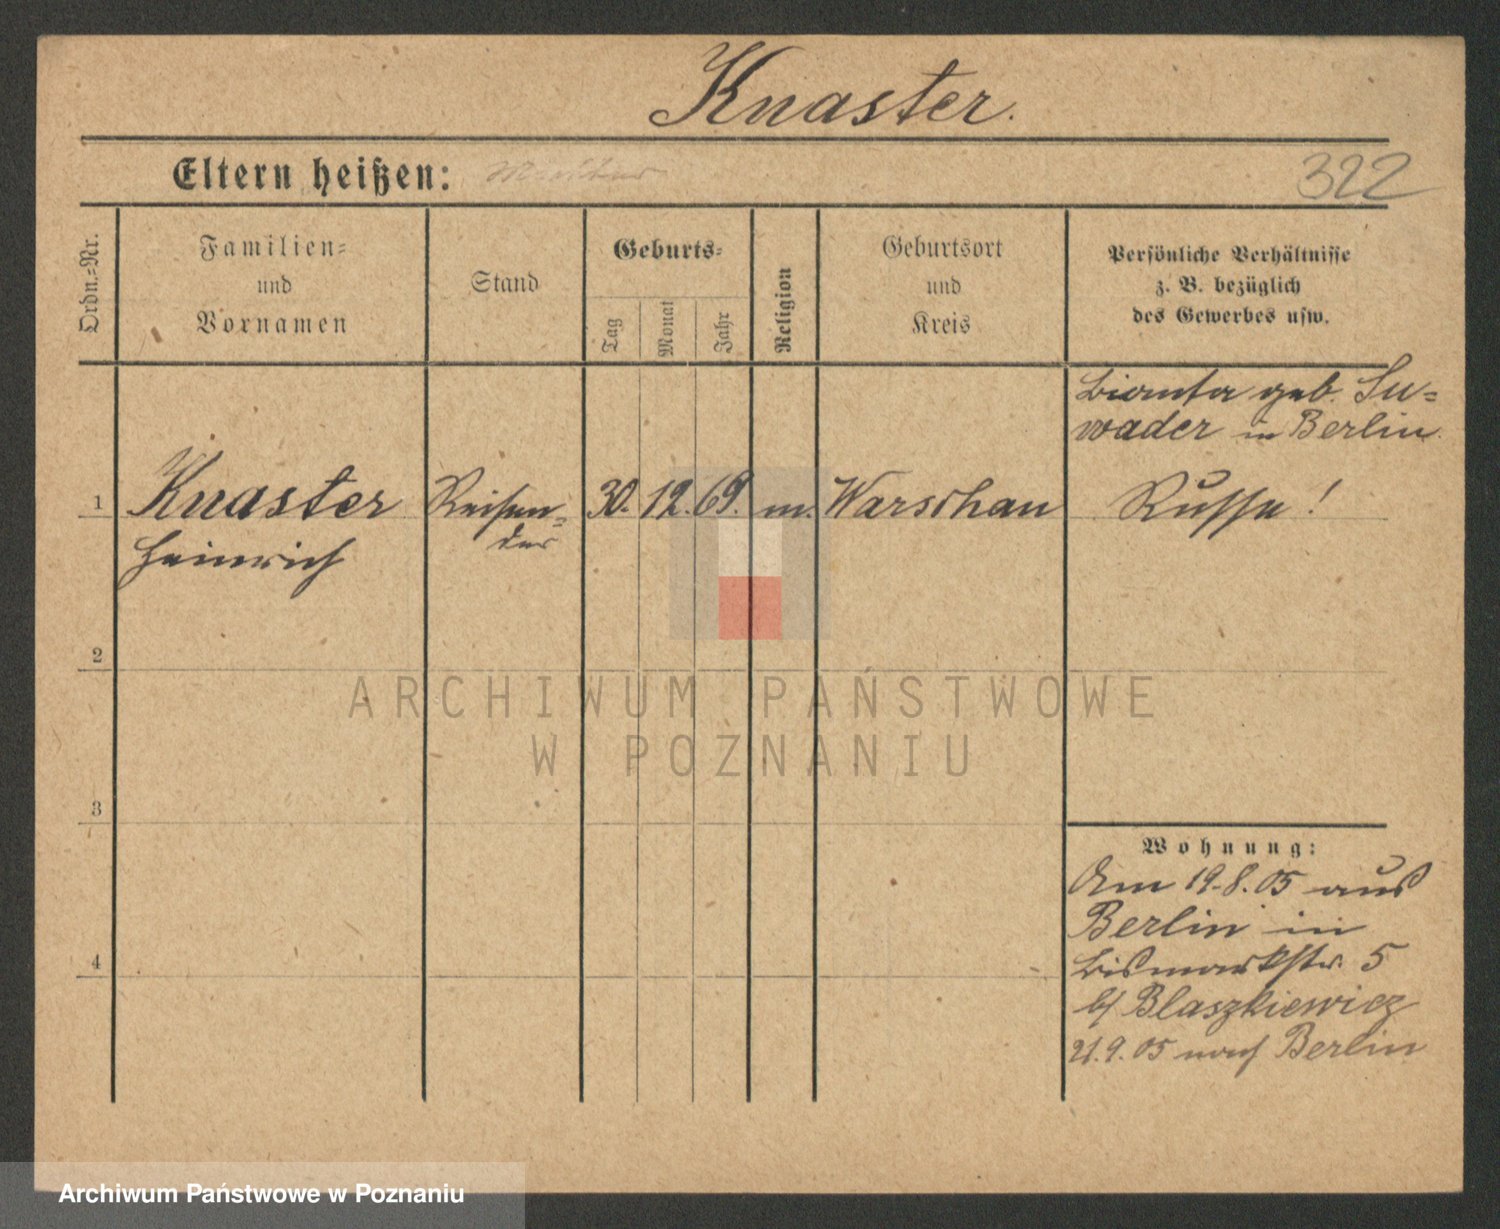 Knaster.
Eltern heißen:
322
Ordn.=Nr.
Familien=
und
Vornamen
Stand
Geburts=
Tag
Monat
Jahr
Religion
Geburtsort
und
Kreis
Persönliche Verhältnisse
z. B. bezüglich
des Gewerbes usw.
geb. Su=
wader in Berlin.
1
Knaster
Heinrich
Reisen=
der
30. 12. 69.
m.
Warschau
Russe!
2
3
4
Wohnung:
Am 19.8.05 aus
Berlin in
Bismarkstr. 5
b/ Blaszkiewicz
21.9.05 nach Berlin
ARCHIWUM PAŃSTWOWE
W POZNANIU
Archiwum Państwowe w Poznaniu